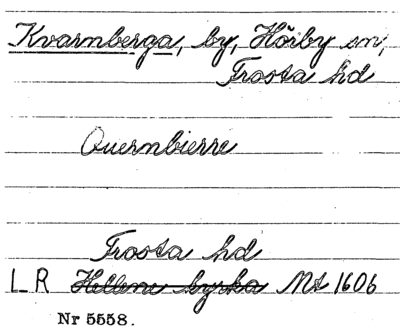 Kvarnberga, by, Hörby sn,
Frosta hd
Quernbierre
Frosta hd
LR Hellene kyrka Mt 1606
Nr 5558.